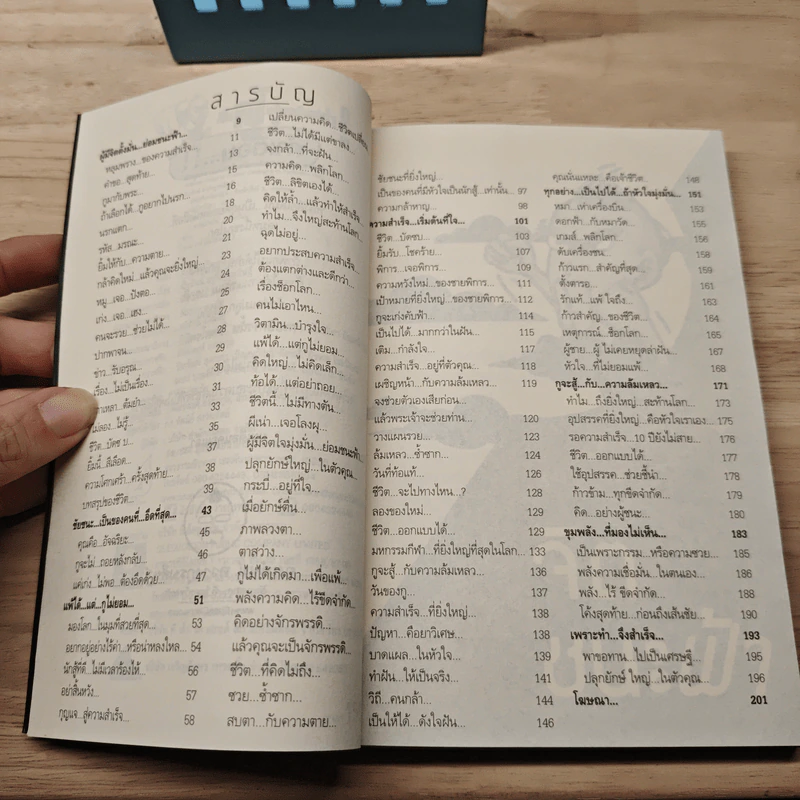 สารบัญ
ผู้มีจิตตั้งมั่น...ย่อมชนะฟ้า... 9
หลุมพราง...ของความสำเร็จ... 11
คำขอ...สุดท้าย... 13
กูมากับพระ... 15
ถ้าเลือกได้...กูอยากไปนรก... 16
นรกแตก... 18
รหัส...มรณะ... 20
ยิ้มให้กับ...ความตาย... 21
กล้าคิดใหม่...แล้วคุณจะยิ่งใหญ่... 23
หมู...เจอ...ปังตอ... 24
เก่ง...เจอ...เฮง... 25
คนจะรวย...ช่วยไม่ได้... 27
ปากพาจน... 28
ข่าว...รับอรุณ... 29
เรื่อง...ไม่เป็นเรื่อง... 31
33
ไม่ลอง...ไม่รู้... 35
ชีวิต...บัดซบ... 37
ยิ้มนี้...สีเลือด... 38
ความโศกเศร้า...ครั้งสุดท้าย... 39
บทสรุปของชีวิต...
ชัยชนะ...เป็นของคนที่...อึดที่สุด... 43
คุณคือ...อัจฉริยะ... 45
กูจะไม่...ถอยหลังกลับ... 46
แค่เก่ง...ไม่พอ...ต้องอึดด้วย... 47
แพ้ได้...แต่...กูไม่ยอม... 51
มองโลก...ในมุมที่สวยที่สุด... 53
อยากอยู่อย่างไร้ค่า...หรือน่าหลงใหล... 54
นักสู้ที่ดี...ไม่มีเวลาร้องไห้... 56
อย่าสิ้นหวัง... 57
กุญแจ...สู่ความสำเร็จ... 58
เปลี่ยนความคิด...ชีวิตเปลี่ยน
ชีวิต...ไม่ได้มีแต่ขาลง...
จงกล้า...ที่จะฝัน...
ความคิด...พลิกโลก...
ชีวิต...ลิขิตเองได้...
คิดให้ล้ำ...แล้วทำให้สำเร็จ...
ทำไม...จึงใหญ่สะท้านโลก...
ฉุดไม่อยู่...
อยากประสบความสำเร็จ...
ต้องแตกต่างและดีกว่า...
เรื่องช็อกโลก...
คนไม่เอาไหน...
วิตามิน...บำรุงใจ...
แพ้ได้...แต่กูไม่ยอม...
คิดใหญ่...ไม่คิดเล็ก...
ท้อได้...แต่อย่าถอย...
ชีวิตนี้...ไม่มีทางตัน...
ผีเน่า...เจอโลงผุ...
ผู้มีจิตใจมุ่งมั่น...ย่อมชนะฟ้า
ปลุกยักษ์ใหญ่...ในตัวคุณ...
กระบี่...อยู่ที่ใจ...
เมื่อยักษ์ตื่น...
ภาพลวงตา...
ตาสว่าง...
กูไม่ได้เกิดมา...เพื่อแพ้...
พลังความคิด...ไร้ขีดจำกัด...
คิดอย่างจักรพรรดิ...
แล้วคุณจะเป็นจักรพรรดิ...
ชีวิต...ที่คิดไม่ถึง...
ซวย...ซ้ำซาก...
สบตา...กับความตาย...
ชัยชนะที่ยิ่งใหญ่...
เป็นของคนที่มีหัวใจเป็นนักสู้...เท่านั้น... 97
ความกล้าหาญ... 98
ความสำเร็จ...เริ่มต้นที่ใจ... 101
ชีวิต...บัดซบ... 103
ยิ้มรับ...โชคร้าย... 107
พิการ...เจอพิการ... 109
ความหวังใหม่...ของชายพิการ... 111
เป้าหมายที่ยิ่งใหญ่...ของชายพิการ... 112
กูจะเก่งคับฟ้า... 114
เป็นไปได้...มากกว่าในฝัน... 115
เติม...กำลังใจ... 117
ความสำเร็จ...อยู่ที่ตัวคุณ... 118
เผชิญหน้า...กับความล้มเหลว... 119
จงช่วยตัวเองเสียก่อน...
แล้วพระเจ้าจะช่วยท่าน... 120
วางแผนรวย... 123
ล้มเหลว...ซ้ำซาก... 124
วันที่ท้อแท้... 126
ชีวิต...จะไปทางไหน...? 127
ลองของใหม่... 129
ชีวิต...ออกแบบได้... 129
มหกรรมกีฬา...ที่ยิ่งใหญ่ที่สุดในโลก... 133
กูจะสู้...กับความล้มเหลว... 136
วันของกู... 137
ความสำเร็จ...ที่ยิ่งใหญ่... 138
ปัญหา...คือยาวิเศษ... 138
บาดแผล...ในหัวใจ... 139
ทำฝัน...ให้เป็นจริง... 141
วิถี...คนกล้า... 144
เป็นให้ได้...ดังใจฝัน... 146
คุณนั่นแหละ...คือเจ้าชีวิต... 148
ทุกอย่าง...เป็นไปได้...ถ้าหัวใจมุ่งมั่น... 151
หมา...เห่าเครื่องบิน... 153
ดอกฟ้า...กับหมาวัด... 155
เกมส์...พลิกโลก... 156
ดับเครื่องชน... 158
ก้าวแรก...สำคัญที่สุด... 159
ตั้งตารอ... 161
รักแท้...แพ้ ใจถึง... 163
ก้าวสำคัญ...ของชีวิต... 164
เหตุการณ์...ช็อกโลก... 165
ผู้ชาย...ผู้ ไม่เคยหยุดล่าฝัน... 167
หัวใจ...ที่ไม่ยอมแพ้... 168
กูจะสู้...กับ...ความล้มเหลว... 171
ทำไม...ถึงยิ่งใหญ่...สะท้านโลก... 173
อุปสรรคที่ยิ่งใหญ่...คือหัวใจเราเอง... 175
รอความสำเร็จ...10 ปียังไม่สาย... 176
ชีวิต...ออกแบบได้... 177
ใช้อุปสรรค...ช่วยชี้นำ... 178
ก้าวข้าม...ทุกขีดจำกัด... 179
คิด...อย่างผู้ชนะ... 180
ขุมพลัง...ที่มองไม่เห็น... 183
เป็นเพราะกรรม...หรือความซวย... 185
พลังความเชื่อมั่น...ในตนเอง... 186
พลัง...ไร้ ขีดจำกัด... 188
โค้งสุดท้าย...ก่อนถึงเส้นชัย... 190
เพราะทำ...จึงสำเร็จ... 193
พาขอทาน...ไปเป็นเศรษฐี... 195
ปลุกยักษ์ ใหญ่...ในตัวคุณ... 196
โฆษณา... 201